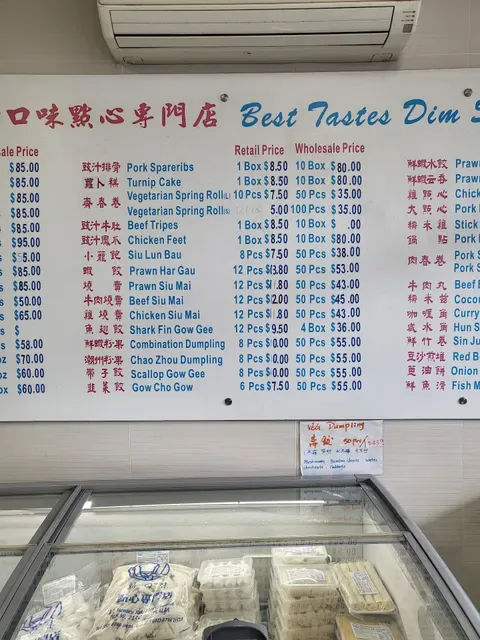 口味點心專門店 Best Tastes Dim
ale Price
Retail Price Wholesale Price
$85.00
$85.00
$85.00
$85.00
$85.00
$95.00
$85.00
$85.00
$50.00
$65.00
$
$58.00
$70.00
$60.00
$60.00
豉汁排骨 Pork Spareribs 1 Box $8.50 10 Box $80.00
蘿卜糕 Turnip Cake 1 Box $8.50 10 Box $80.00
齋春卷 Vegetarian Spring Roll(L) 10 Pcs $7.50 50 Pcs $35.00
Vegetarian Spring Roll 5.00 100 Pcs $35.00
豉汁牛肚 Beef Tripes 1 Box $8.50 10 Box $ .00
豉汁鳳爪 Chicken Feet 1 Box $8.50 10 Box $80.00
小籠飽 Siu Lun Bau 8 Pcs $7.50 50 Pcs $38.00
蝦餃 Prawn Har Gau 12 Pcs 50 Pcs $53.00
燒賣 Prawn Siu Mai 12 Pcs 50 Pcs $43.00
牛肉燒賣 Beef Siu Mai 12 Pcs 50 Pcs $45.00
雞燒賣 Chicken Siu Mai 12 Pcs 50 Pcs $43.00
魚翅餃 Shark Fin Gow Gee 12 Pcs $9.50 4 Box $36.00
鮮蝦粉果 Combination Dumpling 8 Pcs 50 Pcs $55.00
潮州粉果 Chao Zhou Dumpling 8 Pcs 50 Pcs $55.00
帶子餃 Scallop Gow Gee 8 Pcs 50 Pcs $55.00
韮菜餃 Gow Cho Gow 6 Pcs $7.50 50 Pcs $55.00
鮮蝦水餃 Prawn
鮮蝦云吞 Prawn
雞點心 Chick
大點心 Pork
糯米雞 Stick
鍋貼 Pork
肉春卷 Pork S
Pork S
牛肉丸 Beef
糯米茲 Coco
咖喱角 Curry
咸水角 Hun S
鮮竹卷 Sin Ju
豆沙煎堆 Red B
蔥油餅 Onion
鮮魚滑 Fish M
Veg Dumpling
50 Pcs/